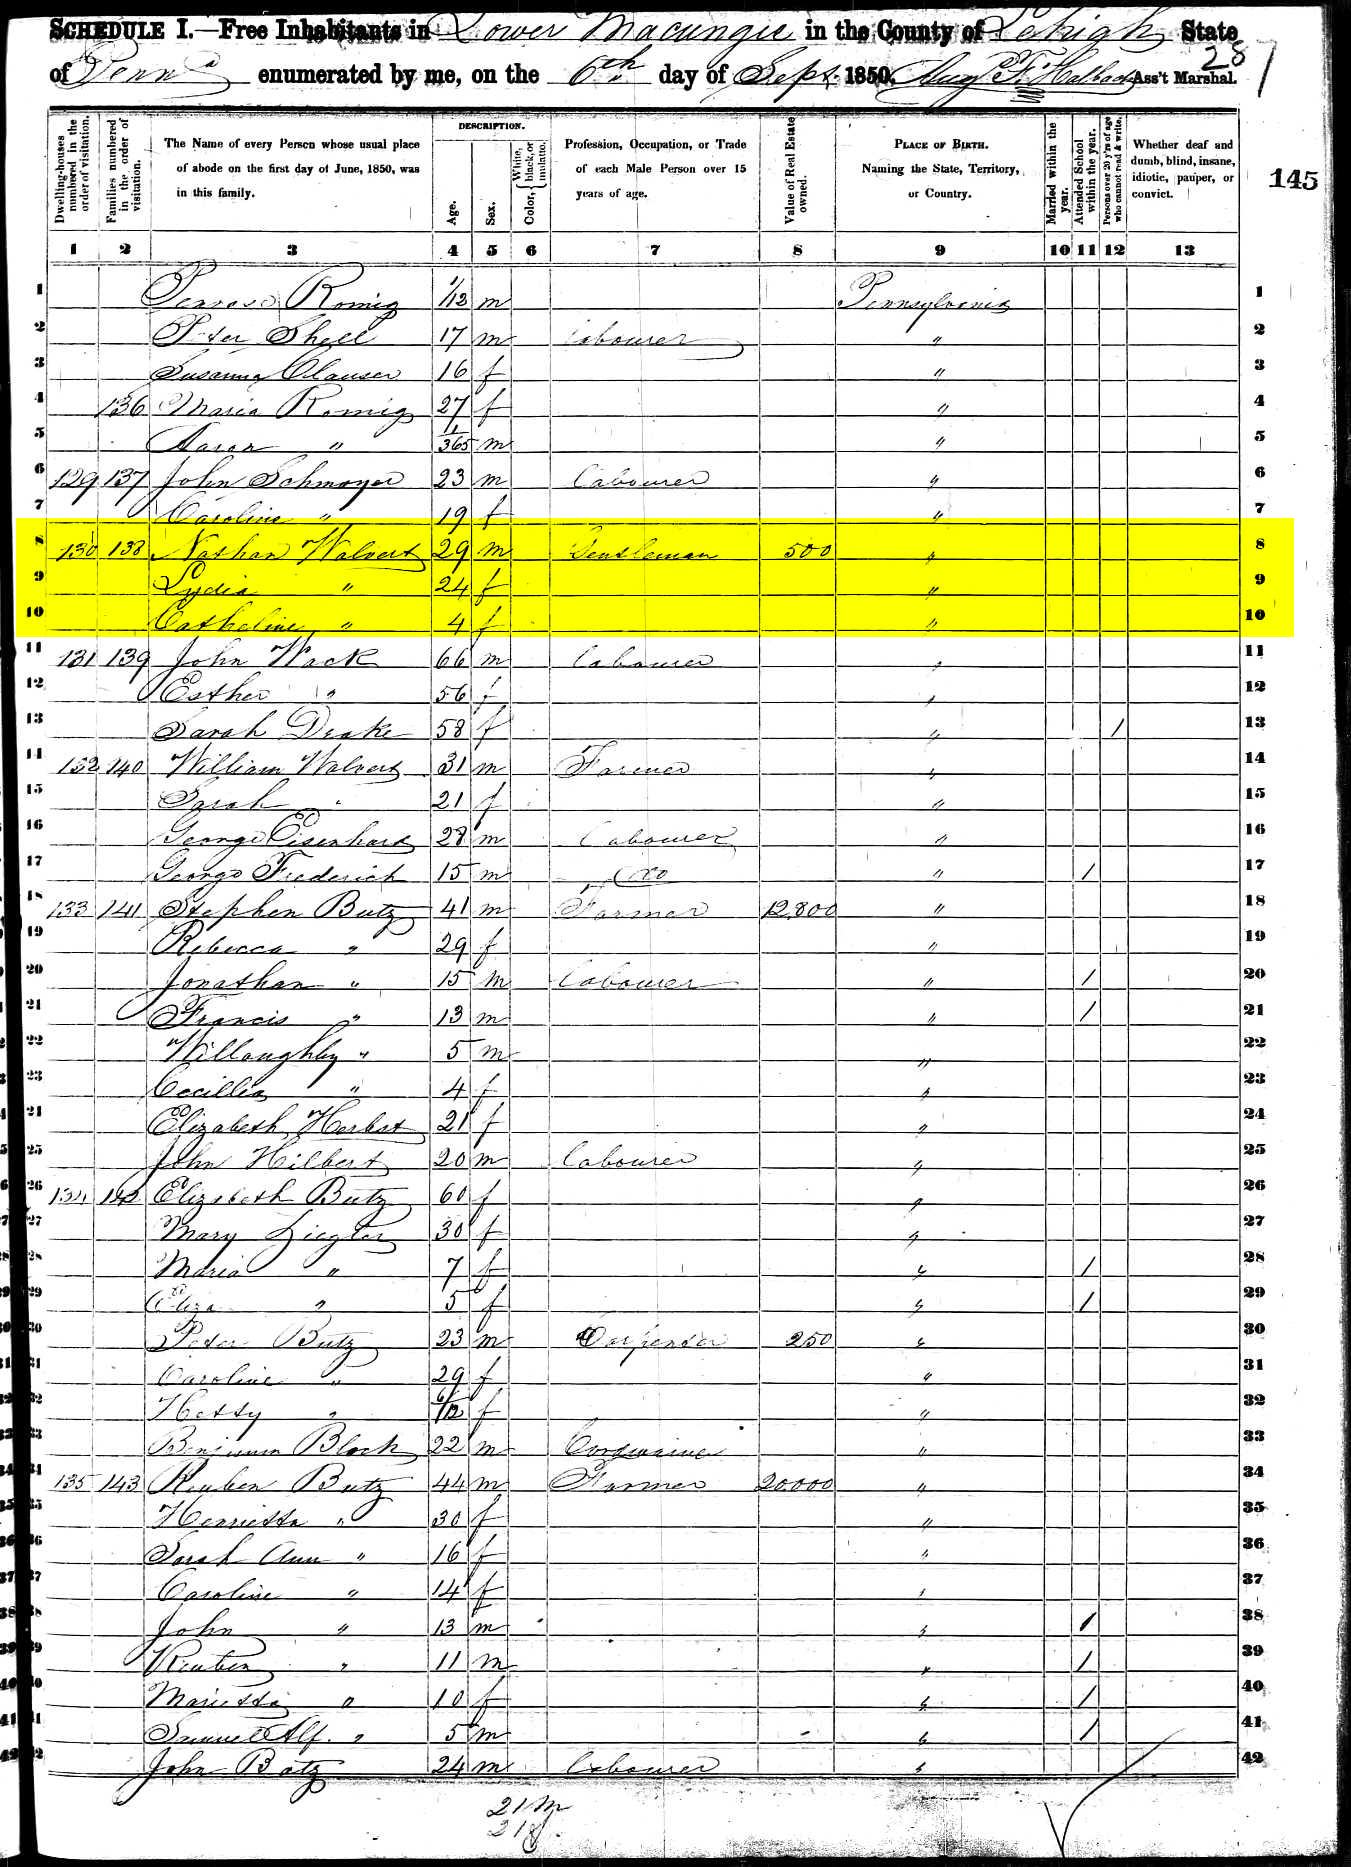 SCHEDULE I.—Free Inhabitants in Lower Macungie in the County of Lehigh State
of Penna enumerated by me, on the 6th day of Sept. 1850. Ass't Marshal.
287
145
Dwelling-houses numbered in the order of visitation.
Families numbered in the order of visitation.
The Name of every Person whose usual place of abode on the first day of June, 1850, was in this family.
DESCRIPTION.
Age.
Sex.
Color, { White, black, or mulatto.
Profession, Occupation, or Trade of each Male Person over 15 years of age.
Value of Real Estate owned.
PLACE OF BIRTH. Naming the State, Territory, or Country.
Married within the year.
Attended School within the year.
Persons over 20 y'rs of age who cannot read & write.
Whether deaf and dumb, blind, insane, idiotic, pauper, or convict.
1 2 3 4 5 6 7 8 9 10 11 12 13
1 Penrose Romig 1/12 m Pennsylvania 1
2 Peter Shell 17 m Labourer " 2
3 Susanna Clauser 16 f " 3
4 136 Maria Romig 27 f " 4
5 Aaron " 11/365 m " 5
6 129 137 John Schmoyer 23 m Labourer " 6
7 Caroline " 19 f " 7
8 130 138 Nathan Walvert 29 m Gentleman 500 " 8
9 Lydia " 24 f " 9
10 Catheline " 4 f " 10
11 131 139 John Wack 66 m Labourer " 11
12 Esther " 56 f " 12
13 Sarah Drake 58 f " / 13
14 132 140 William Walvert 31 m Farmer " 14
15 Sarah " 21 f " 15
16 George Eisenhard 28 m Labourer " 16
17 George Frederick 15 m Do " / 17
18 133 141 Stephen Butz 41 m Farmer 12,800 " 18
19 Rebecca " 29 f " 19
20 Jonathan " 15 m Labourer " / 20
21 Francis " 13 m " / 21
22 Willoughby " 5 m " 22
23 Cecillia " 4 f " 23
24 Elizabeth Herbst 21 f " 24
25 John Hilbert 20 m Labourer " 25
26 134 142 Elizabeth Butz 60 f " 26
27 Mary Ziegler 30 f " 27
28 Maria " 7 f " / 28
29 Eliza " 5 f " / 29
30 Peter Butz 23 m Carpenter 250 " 30
31 Caroline " 29 f " 31
32 Hetty " 6/12 f " 32
33 Benjamin Block 22 m Cordwainer " 33
34 135 143 Reuben Butz 44 m Farmer 20.000 " 34
35 Henrietta " 30 f " 35
36 Sarah Ann " 16 f " 36
37 Caroline " 14 f " 37
38 John " 13 m " / 38
39 Reuben " 11 m " / 39
40 Marietta " 10 f " / 40
41 Samuel Alf. " 5 m " / 41
42 John Batz 24 m Labourer " 42
21 m
21 f